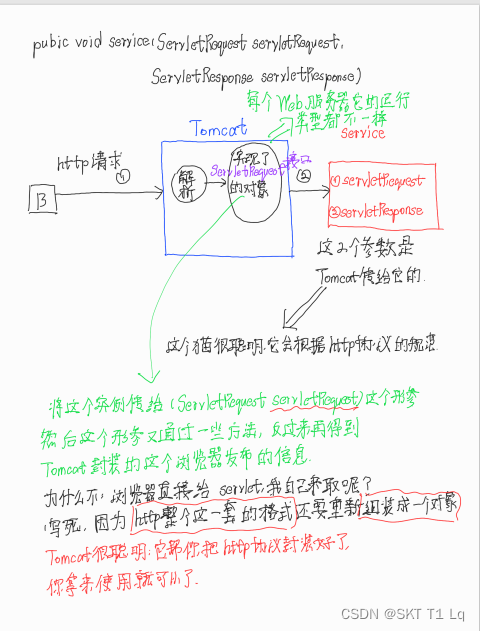 pubic void service(ServletRequest servletRequest,
ServletResponse servletResponse)
每个Web服务器它的运行
类型都不一样
Tomcat
Service
http请求
①
B
解析
实现了
ServletRequest接口
的对象
②
①servletRequest
②servletResponse
这2个参数是
Tomcat传给它的.
这个猫很聪明.它会根据http协议的规范.
将这个实例传给(ServletRequest servletRequest)这个形参
然后这个形参又通过一些方法,反过来再得到
Tomcat封装的这个浏览器发布的信息.
为什么不,浏览器直接给servlet,我自己来取呢?
写死,因为http整个这一套的格式还要重新组装成一个对象
Tomcat很聪明:它帮你把http协议封装好了,
你拿来使用就可以了.
CSDN @SKT T1 Lq